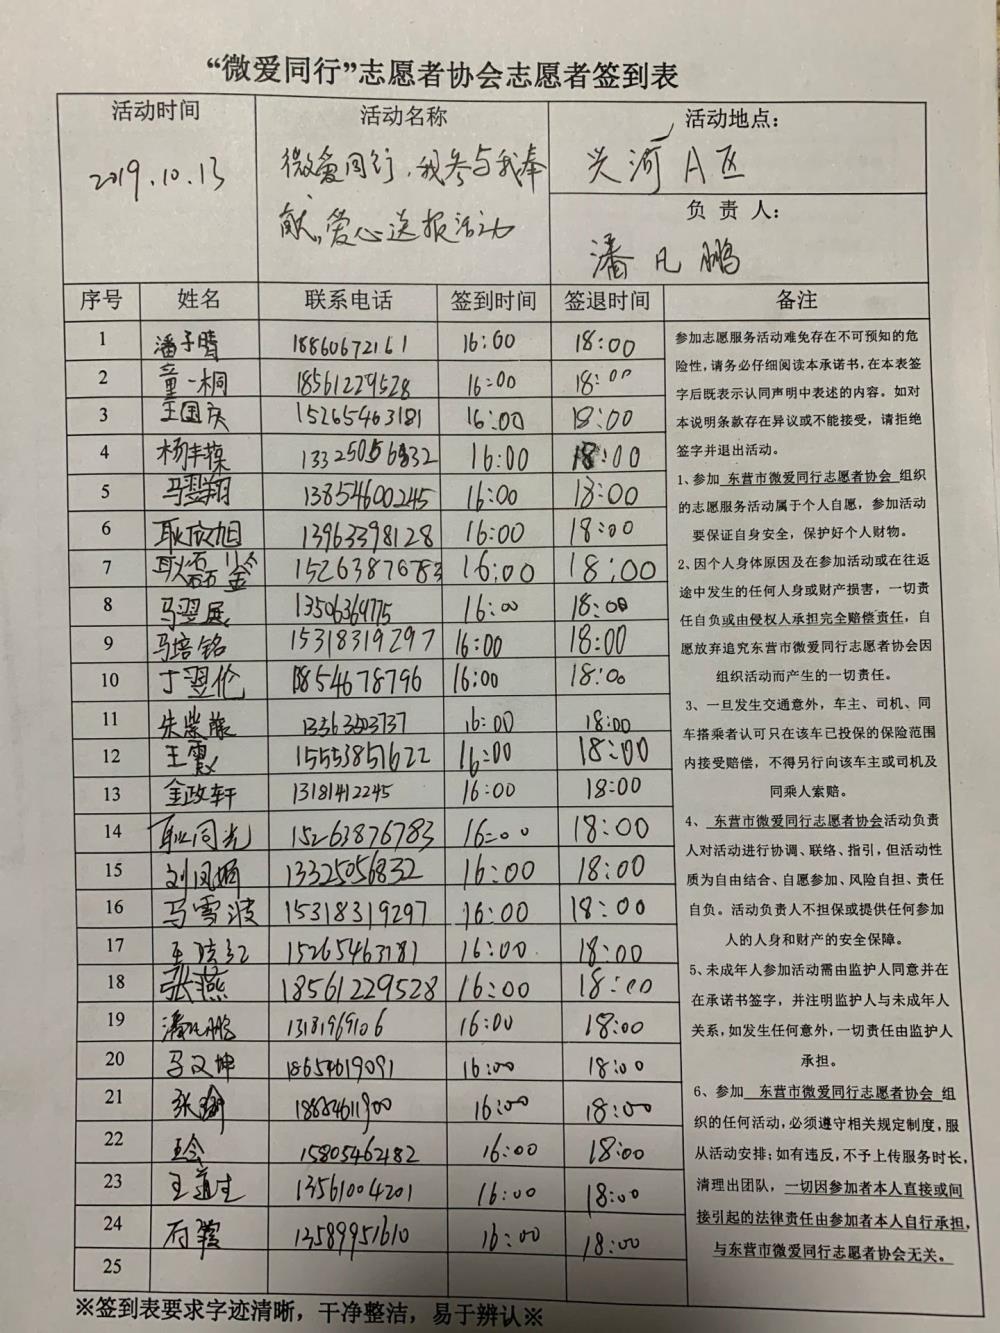 “微爱同行”志愿者协会志愿者签到表
活动时间 活动名称 活动地点：
2019.10.13 微爱同行，我参与我奉 兴河A区
献，爱心送报活动
负 责 人：
潘凡鹏
序号 姓名 联系电话 签到时间 签退时间 备注
1 潘子晴 18860672161 16:00 18:00
2 童一桐 18561229528 16:00 18:00
3 王国庆 15265463181 16:00 18:00
4 杨丰葆 13325056832 16:00 18:00
5 马翌翔 13854600245 16:00 18:00
6 耿欣旭 13963398128 16:00 18:00
7 15263876783 16:00 18:00
8 马翌展 13506364775 16:00 18:00
9 马培铭 15318319297 16:00 18:00
10 丁翌伦 18854678796 16:00 18:00
11 16:00 18:00
12 15553851622 16:00 18:00
13 金政轩 13181412245 16:00 18:00
14 耿同光 15263876783 16:00 18:00
15 刘凤娟 13325056832 16:00 18:00
16 马雪波 15318319297 16:00 18:00
17 15265463181 16:00 18:00
18 张燕 18561229528 16:00 18:00
19 潘凡鹏 13181969106 16:00 18:00
20 马义坤 18654619091 16:00 18:00
21 16:00 18:00
22 15805462182 16:00 18:00
23 王道生 13561004201 16:00 18:00
24 13589951610 16:00 18:00
25
参加志愿服务活动难免存在不可预知的危
险性，请务必仔细阅读本承诺书，在本表签
字后既表示认同声明中表述的内容。如对
本说明条款存在异议或不能接受，请拒绝
签字并退出活动。
1、参加 东营市微爱同行志愿者协会 组织
的志愿服务活动属于个人自愿，参加活动
要保证自身安全，保护好个人财物。
2、因个人身体原因及在参加活动或在往返
途中发生的任何人身或财产损害，一切责
任自负或由侵权人承担完全赔偿责任，自
愿放弃追究东营市微爱同行志愿者协会因
组织活动而产生的一切责任。
3、一旦发生交通意外，车主、司机、同
车搭乘者认可只在该车已投保的保险范围
内接受赔偿，不得另行向该车主或司机及
同乘人索赔。
4、 东营市微爱同行志愿者协会活动负责
人对活动进行协调、联络、指引，但活动性
质为自由结合、自愿参加、风险自担、责任
自负。活动负责人不担保或提供任何参加
人的人身和财产的安全保障。
5、未成年人参加活动需由监护人同意并在
在承诺书签字，并注明监护人与未成年人
关系，如发生任何意外，一切责任由监护人
承担。
6、参加 东营市微爱同行志愿者协会 组
织的任何活动，必须遵守相关规定制度，服
从活动安排；如有违反，不予上传服务时长，
清理出团队，一切因参加者本人直接或间
接引起的法律责任由参加者本人自行承担，
与东营市微爱同行志愿者协会无关。
※签到表要求字迹清晰，干净整洁，易于辨认※